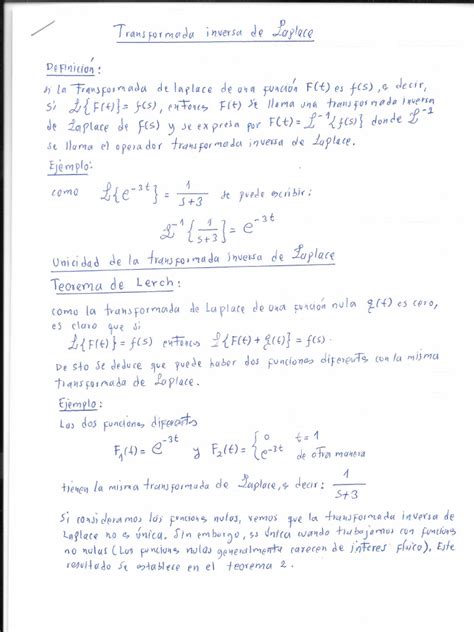 Transformada inversa de Laplace
Definición:
si la Transformada de laplace de una función F(t) es f(s), es decir,
Si ℒ{F(t)} = f(s), entonces F(t) se llama una transformada inversa
de Laplace de f(s) y se expresa por F(t) = ℒ⁻¹{f(s)} donde ℒ⁻¹
se llama el operador transformada inversa de Laplace.
Ejemplo:
como ℒ{e^{-3t}} = 1/(s+3) se puede escribir:
ℒ⁻¹{1/(s+3)} = e^{-3t}
Unicidad de la transformada inversa de Laplace
Teorema de Lerch:
como la transformada de Laplace de una función nula q(t) es cero,
es claro que si
ℒ{F(t)} = f(s) entonces ℒ{F(t) + q(t)} = f(s).
De sto se deduce que puede haber dos funciones diferentes con la misma
transformada de Laplace.
Ejemplo:
Las dos funciones diferentes
F₁(t) = e^{-3t} y F₂(t) = { 0 t = 1
e^{-3t} de otra manera
tienen la misma transformada de Laplace, es decir: 1/(s+3)
Si consideramos las funciones nulas, vemos que la transformada inversa de
Laplace no es única. Sin embargo, es única cuando trabajamos con funciones
no nulas (Las funciones nulas generalmente carecen de interes físico). Este
resultado se establece en el teorema 2.